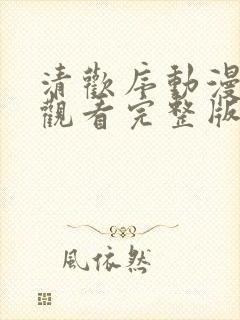 清歡序動漫
觀看完整版
風依然